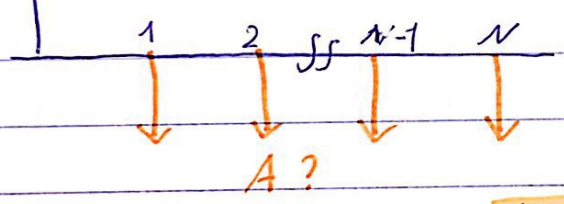 1 2 ∫∫ N-1 N
A ?